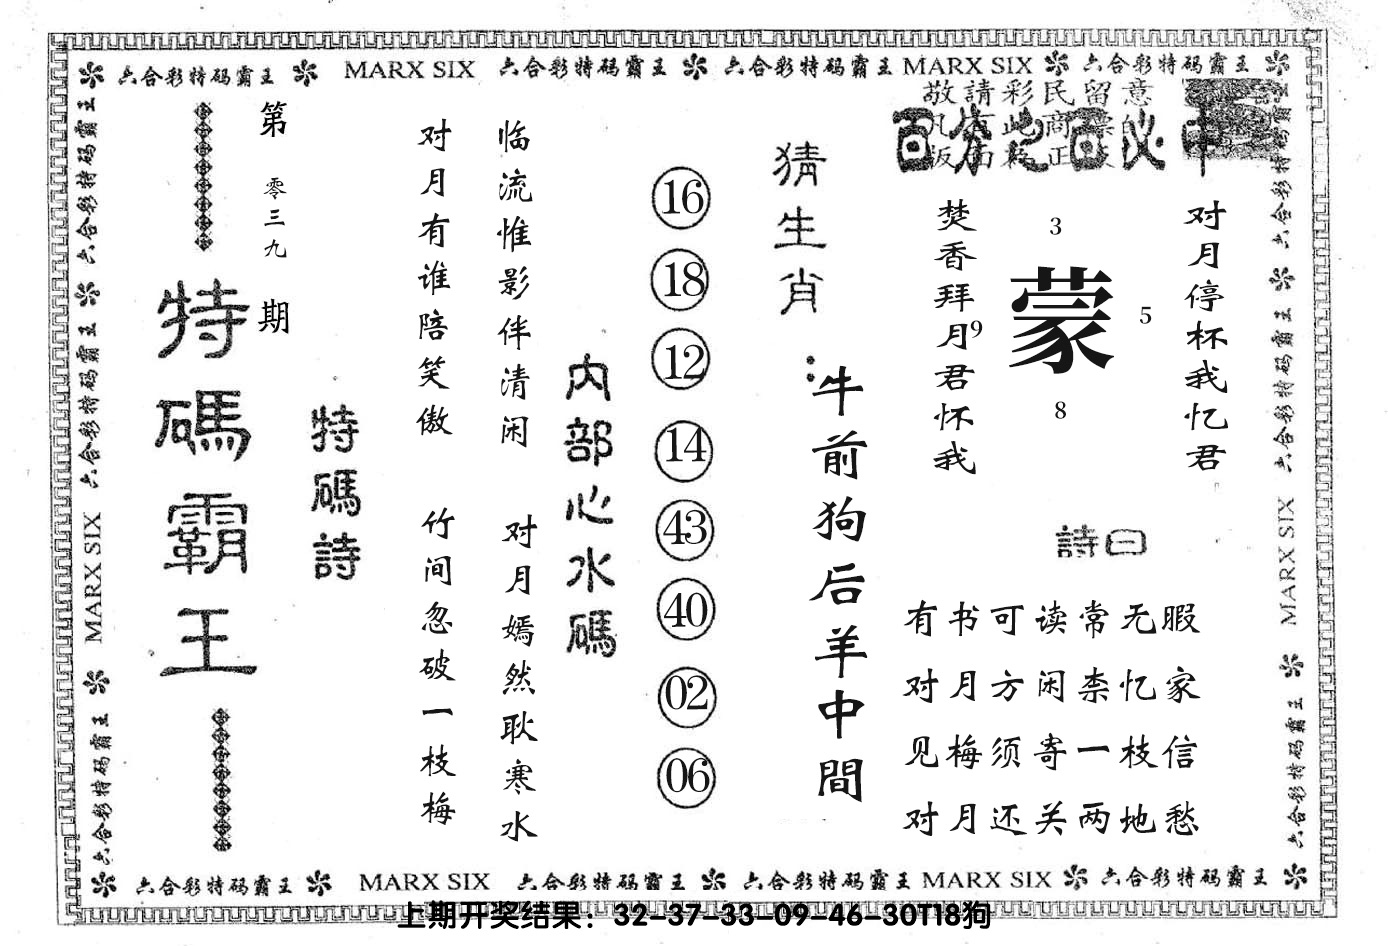 六合彩特码霸王 MARX SIX 六合彩特码霸王 六合彩特码霸王 MARX SIX 六合彩特码霸王
敬請彩民留意
百分之百必中
对月停杯我忆君
3
5
蒙
9
8
焚香拜月君怀我
詩曰
有书可读常无暇
对月方闲柰忆家
见梅须寄一枝信
对月还关两地愁
猜生肖：
牛前狗后羊中間
16
18
12
14
43
40
02
06
内部心水碼
临流惟影伴清闲
对月嫣然耿寒水
对月有谁陪笑傲
竹间忽破一枝梅
特碼詩
第零三九期
特碼霸王
六合彩特码霸王 六合彩特码霸王 MARX SIX 六合彩特码霸王
六合彩特码霸王 六合彩特码霸王 MARX SIX 六合彩特码霸王
六合彩特码霸王 MARX SIX 六合彩特码霸王 六合彩特码霸王 MARX SIX 六合彩特码霸王
上期开奖结果：32-37-33-09-46-30T18狗